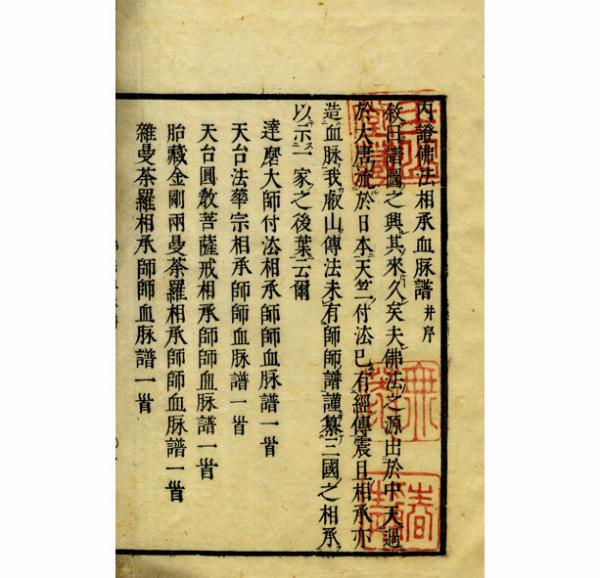 內證佛法相承血脉譜 并序
敘曰譜圖之興其來久矣夫佛法之源出於中天過
於大唐流於日本天竺付法已有經傳震旦相承亦
造血脉我叡山傳法未有師師譜謹纂三國之相承
以示一家之後葉云爾
達磨大師付法相承師師血脉譜一首
天台法華宗相承師師血脉譜一首
天台圓敎菩薩戒相承師師血脉譜一首
胎藏金剛兩曼荼羅相承師師血脉譜一首
雜曼荼羅相承師師血脉譜一首